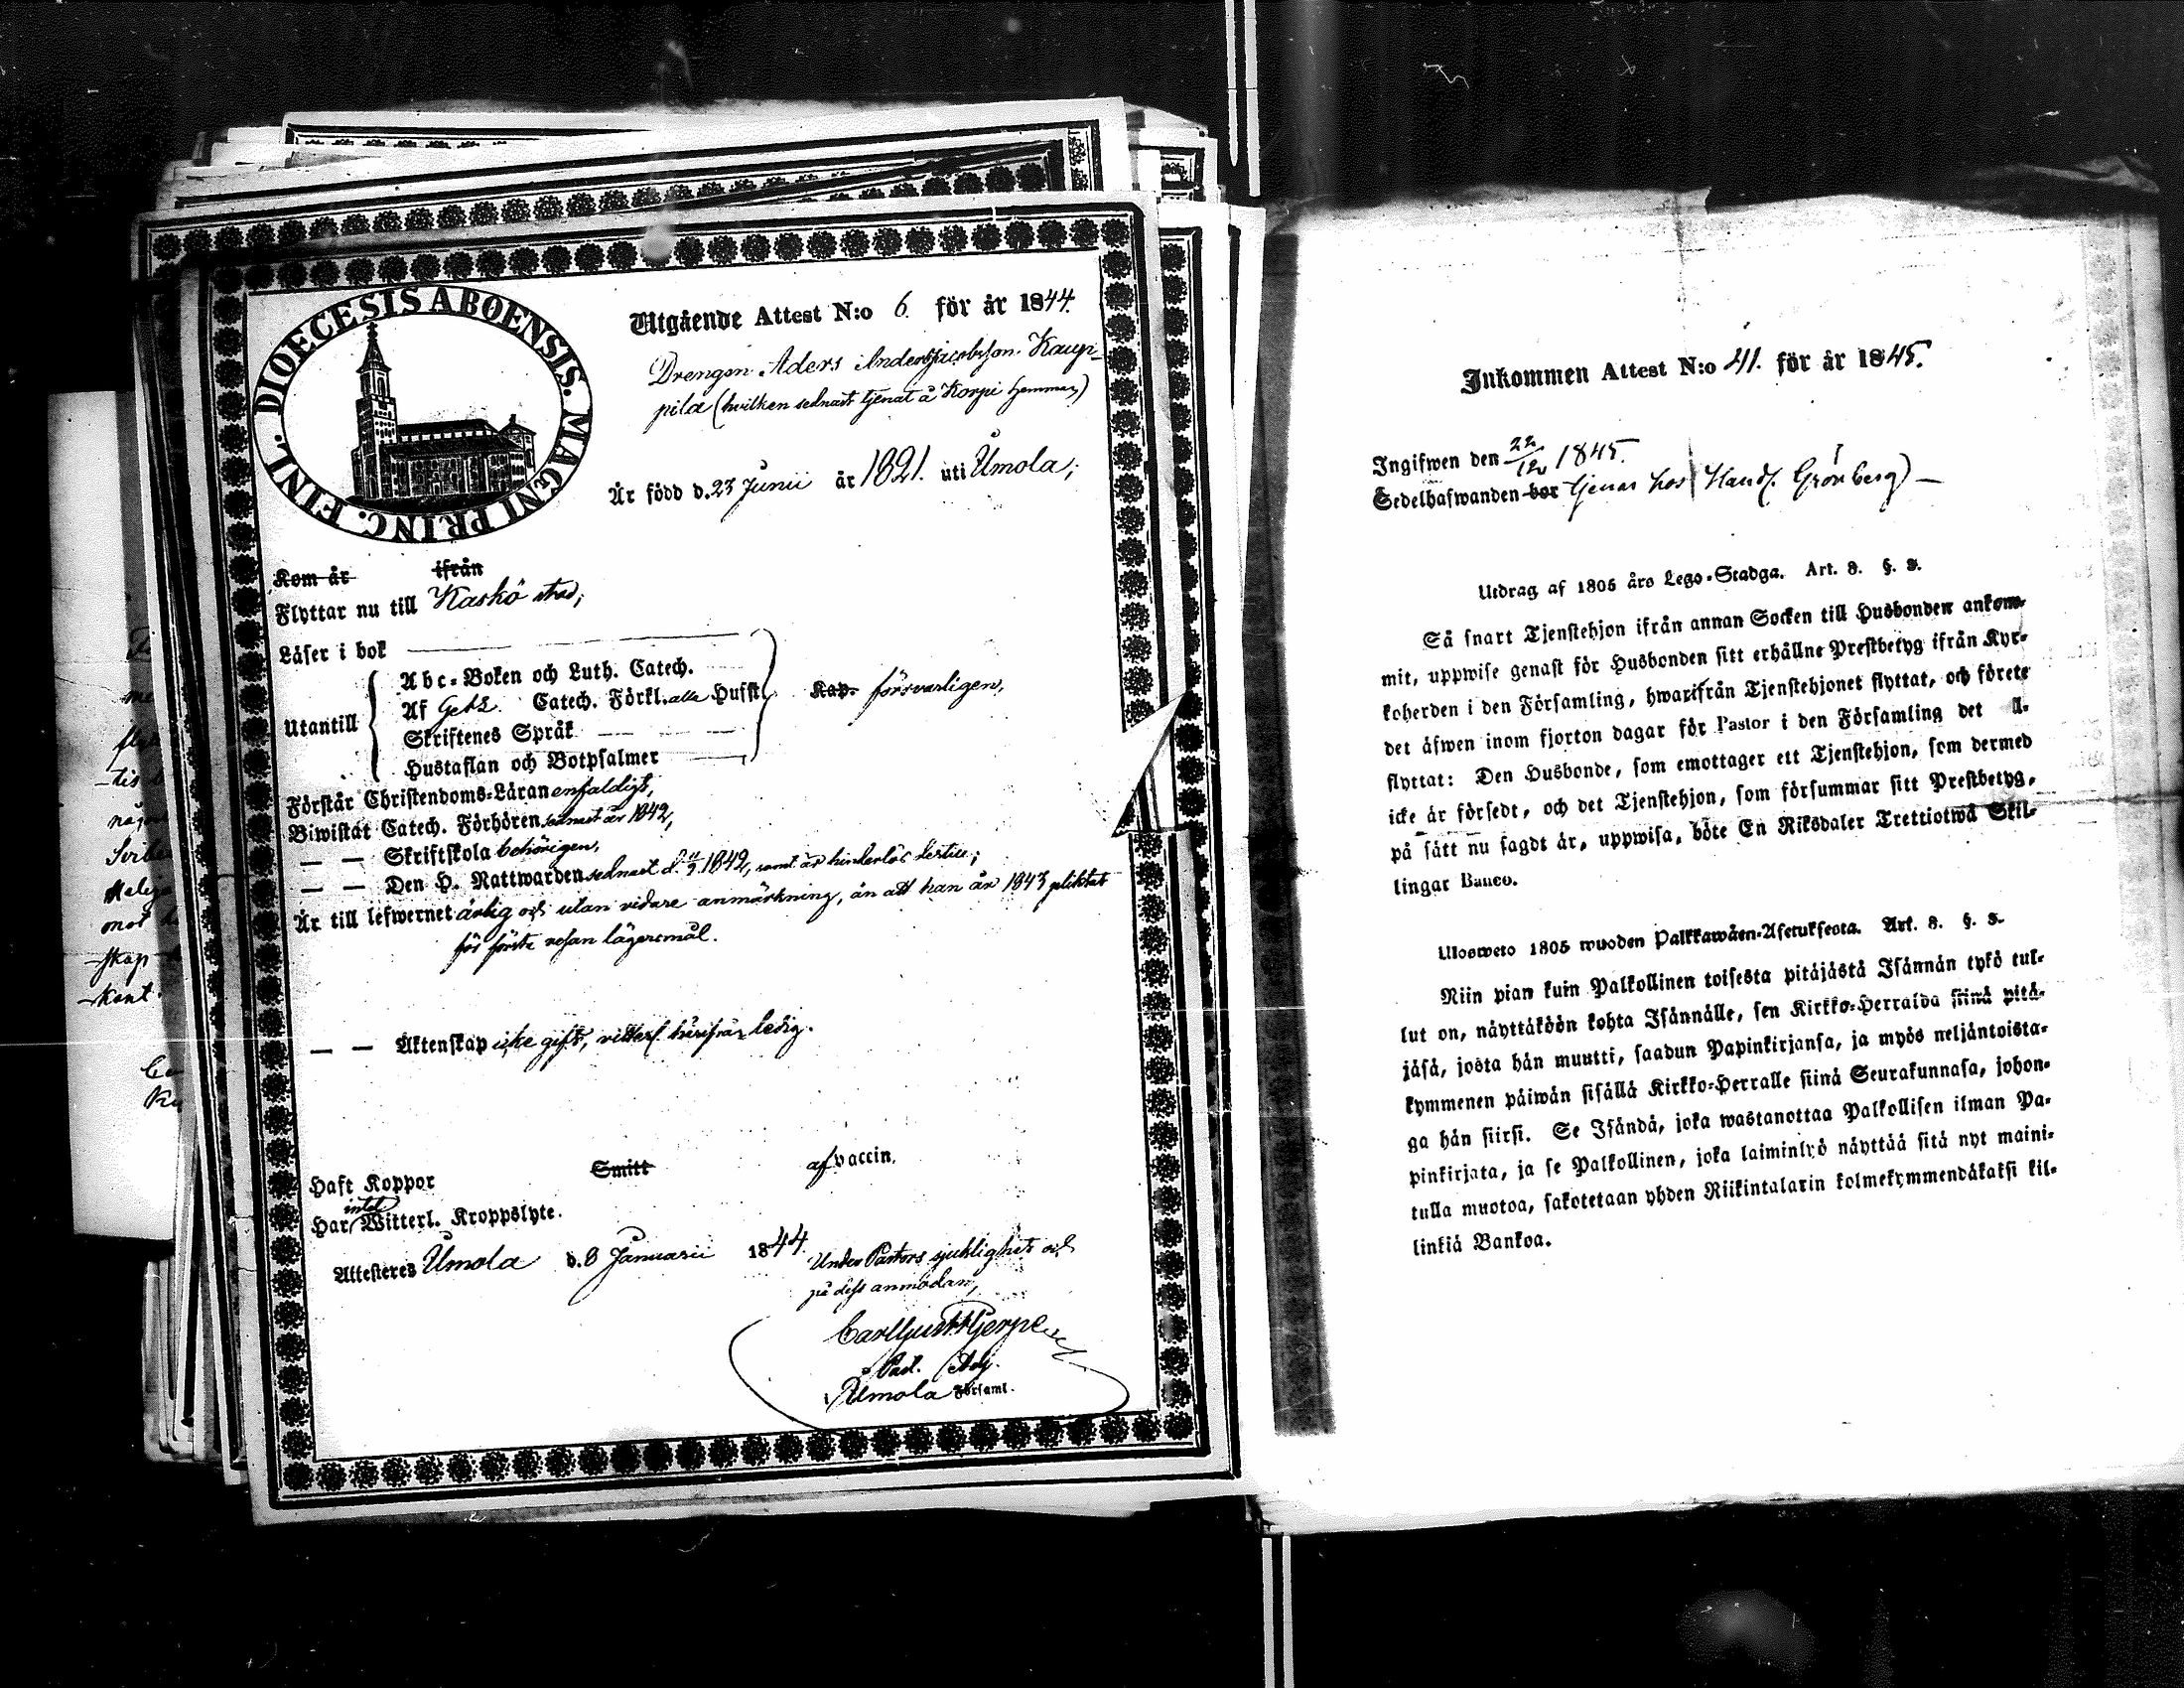 DIOECESIS ABOENSIS. MAGNI PRINC. FINL.
Utgående Attest N:o 6. för år 1844.
Drengen Aders Andersjacobsson Kaup-
pila (hvilken sednast tjenat å Korpi hemman)
Är född d. 23 Junii år 1821. uti Umola;
Kom år ifrån
Flyttar nu till Kaskö stad;
Läser i bok
Abc-Boken och Luth. Catech.
Af Catech. Förkl. alla Hufst.
Utantill
Kap. försvarligen,
Skriftenes Språk
Hustaflan och Botpsalmer
Förstår Christendoms-Läran enfaldigt,
Biwistat Catech. Förhören sednast år 1842,
— — Skriftskola behörigen,
— — Den H. Nattwarden sednast d. 1842, samt är hinderlös dertill;
Är till lefwernet ärlig och utan vidare anmärkning, än att han år 1843 pliktat
för första resan lägersmål.
— — Äktenskap icke gift, vitterl. härifrån ledig.
Haft Koppor Smitt af vaccin.
intet
Har Witterl. Kroppslyte.
Attesteres Umola d. 8 Januarii 1844.
Under Pastors sjuklighet och
på dess anmodan,
Carl Gust. Hjerpe
Past. Adj.
Umola Församl.
Inkommen Attest N:o 41. för år 1845.
Ingifwen den 22/12 1845.
Sedelhafwanden bor tjenar hos Handl. Grönberg) —
Utdrag af 1805 års Lego-Stadga. Art. 3. §. 3.
Så snart Tjenstehjon ifrån annan Socken till Husbonden ankom-
mit, uppwise genast för Husbonden sitt erhållne Prestbetyg ifrån Kyr-
koherden i den Församling, hwarifrån Tjenstehjonet flyttat, och förete
det äfwen inom fjorton dagar för Pastor i den Församling det
flyttat: Den Husbonde, som emottager ett Tjenstehjon, som dermed
icke är försedt, och det Tjenstehjon, som försummar sitt Prestbetyg,
på sätt nu sagdt är, uppwisa, böte En Riksdaler Trettiotwå Skil-
lingar Banco.
Ulosweto 1805 wuoden Palkkawäen-Asetuksesta. Art. 3. §. 3.
Niin pian kuin Palkollinen toisesta pitäjästä Isännän tykö tul-
lut on, näyttäköön kohta Isännälle, sen Kirkko-Herralda siinä pitä-
jäsä, josta hän muutti, saadun Papinkirjansa, ja myös neljäntoista-
kymmenen päiwän sisällä Kirkko-Herralle siinä Seurakunnasa, johon-
ga hän siirsi. Se Isändä, joka wastanottaa Palkollisen ilman Pa-
pinkirjata, ja se Palkollinen, joka laiminlyö näyttää sitä nyt maini-
tulla muotoa, sakotetaan yhden Riikintalarin kolmekymmendäkaksi kil-
linkiä Bankoa.